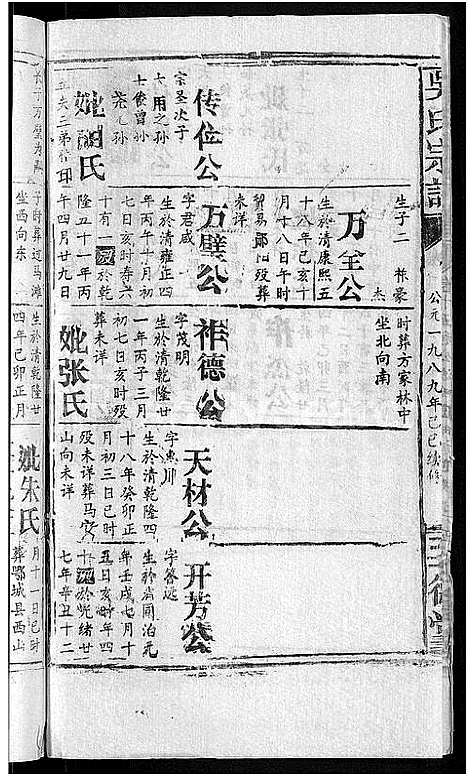 吴氏宗谱
公元一九八九年己巳续修
生子二 禄豪
杰
时葬方家林中
坐北向南
万全公
生於清康熙五
十八年己亥十
月十八日午时
贸易郧阳殁葬
未详
传位公
宗圣次子
士俊曾孙
妣胡氏
万璧公
字君咸
生於清雍正四
年丙午十月初
七日亥时寿六
十有 於乾
隆五十一年丙
午四月廿九日
子时葬过马滩
坐西向东
祚德公
字茂明
生於清乾隆廿
一年丙子三月
初七日亥时殁
葬未详
妣张氏
生於清乾隆廿
四年己卯正月
天材公
字惠川
生於清乾隆四
十八年癸卯正
月初三日己时
殁未详葬马安
山向未详
妣朱氏
开芳公
字答远
生於清同治元
年壬戌七月十
五亥时年四
十 於光绪廿
七年辛丑十二
月十一日己时
葬鄂城县西山